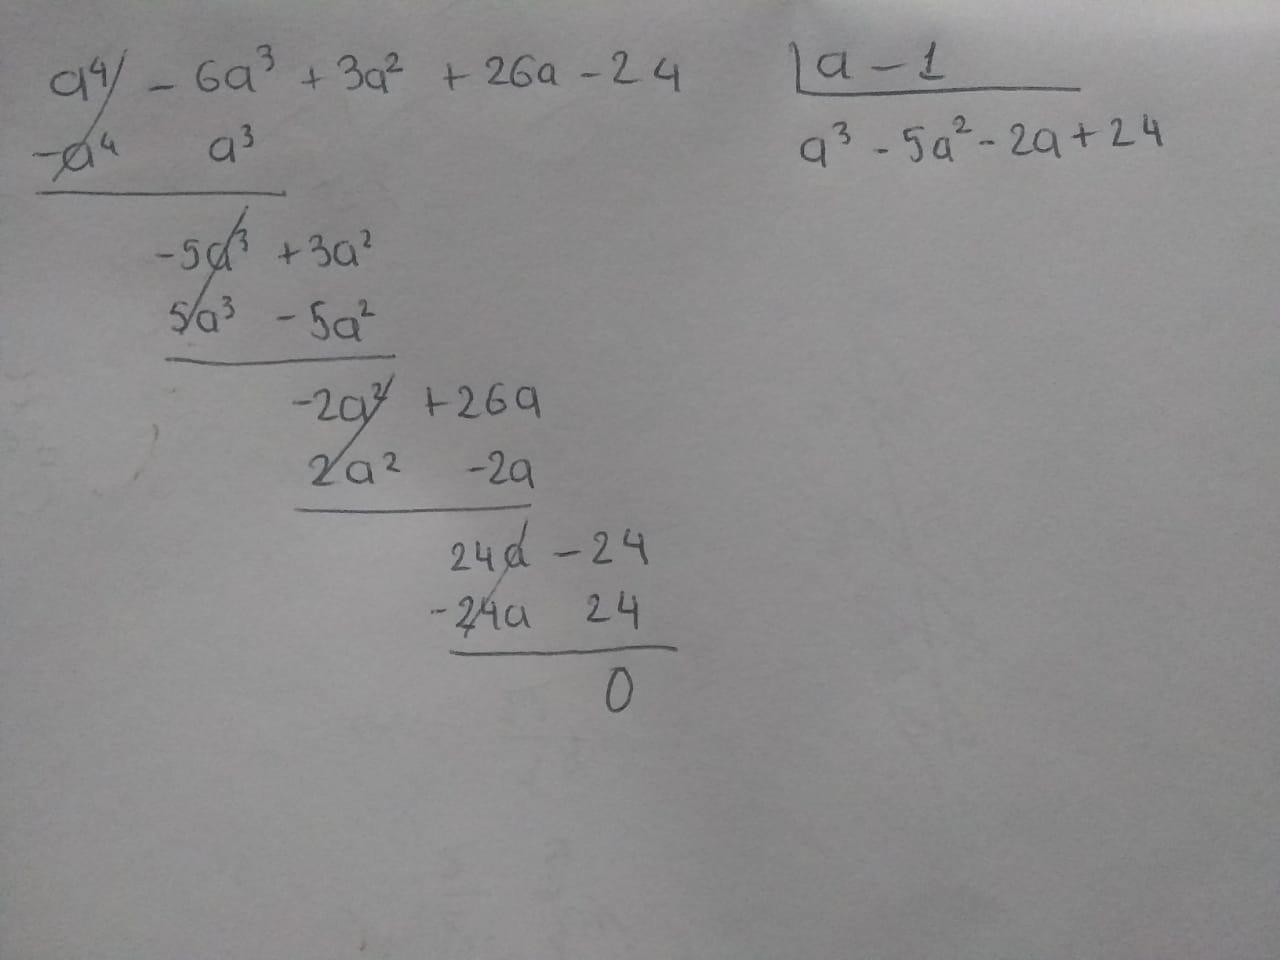 a⁴ - 6a³ + 3a² + 26a - 24 | a - 1
-a⁴ a³ a³ - 5a² - 2a + 24
-5a³ + 3a²
5a³ - 5a²
-2a² + 26a
2a² -2a
24a - 24
-24a 24
0